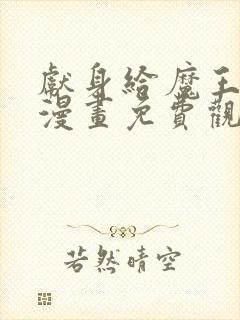 獻身給魔王
漫畫免費觀
若然晴空